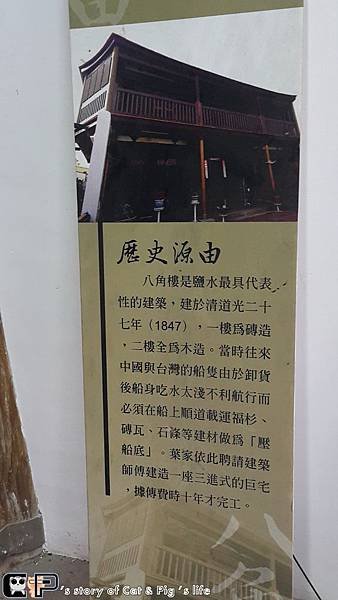 歷史源由
八角樓是鹽水最具代表
性的建築，建於清道光二十
七年（1847），一樓爲磚造
，二樓全爲木造。當時往來
中國與台灣的船隻由於卸貨
後船身吃水太淺不利航行而
必須在船上順道載運福杉、
磚瓦、石條等建材做爲「壓
船底」。葉家依此聘請建築
師傅建造一座三進式的巨宅
，據傳費時十年才完工。
八角
's story of Cat & Pig 's life